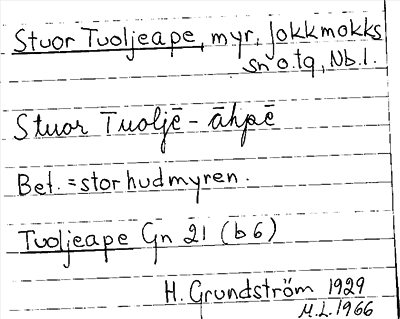 Stuor Tuoljeape, myr, Jokkmokks
sn o. tg, Nb. l.
Stuor Tuoljē - āhpē
Bet. = storhudmyren.
Tuoljeape Gn 21 (b6)
H. Grundström 1929
M.L. 1966